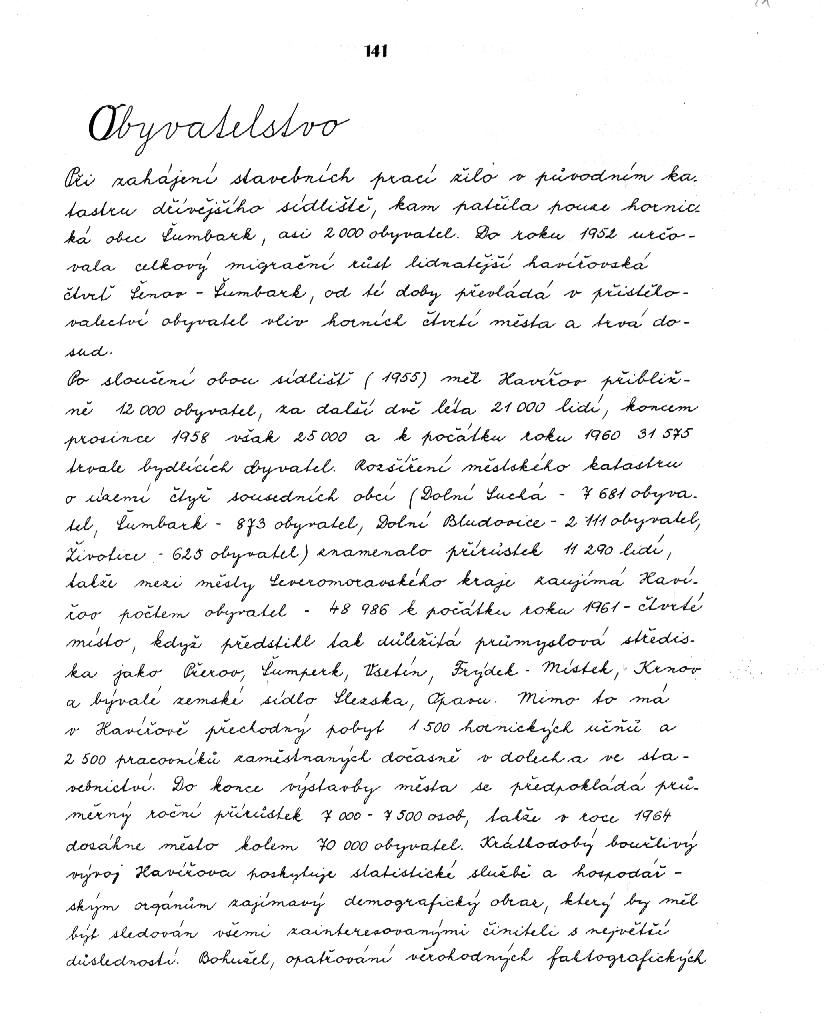 141
Obyvatelstvo
Při zahájení stavebních prací žilo v původním ka-
tastru dřívějšího sídliště, kam patřila pouze hornic-
ká obec Šumbark, asi 2 000 obyvatel. Do roku 1952 určo-
vala celkový migrační růst lidnatější havířovská
čtvrť Šenov - Šumbark, od té doby převládá v přistěho-
valectví obyvatel vliv horních čtvrtí města a trvá do-
sud.
Po sloučení obou sídlišť (1955) měl Havířov přibliž-
ně 12 000 obyvatel, za další dvě léta 21 000 lidí, koncem
prosince 1958 však 25 000 a k počátku roku 1960 31 575
trvale bydlících obyvatel. Rozšíření městského katastru
o území čtyř sousedních obcí (Dolní Suchá - 7 681 obyva-
tel, Šumbark - 873 obyvatel, Dolní Bludovice - 2 111 obyvatel,
Životice - 625 obyvatel) znamenalo přírůstek 11 290 lidí,
takže mezi městy Severomoravského kraje zaujímá Haví-
řov počtem obyvatel - 48 986 k počátku roku 1961 - čtvrté
místo, když předstihl tak důležitá průmyslová středis-
ka jako Přerov, Šumperk, Vsetín, Frýdek - Místek, Krnov
a bývalé zemské sídlo Slezska, Opavu. Mimo to má
v Havířově přechodný pobyt 1 500 hornických učňů a
2 500 pracovníků zaměstnaných dočasně v dolech a ve sta-
vebnictví. Do konce výstavby města se předpokládá prů-
měrný roční přírůstek 7 000 - 7 500 osob, takže v roce 1964
dosáhne město kolem 70 000 obyvatel. Krátkodobý bouřlivý
vývoj Havířova poskytuje statistické službě a hospodář-
ským orgánům zajímavý demografický obraz, který by měl
být sledován všemi zainteresovanými činiteli s největší
důsledností. Bohužel, opatřování věrohodných faktografických